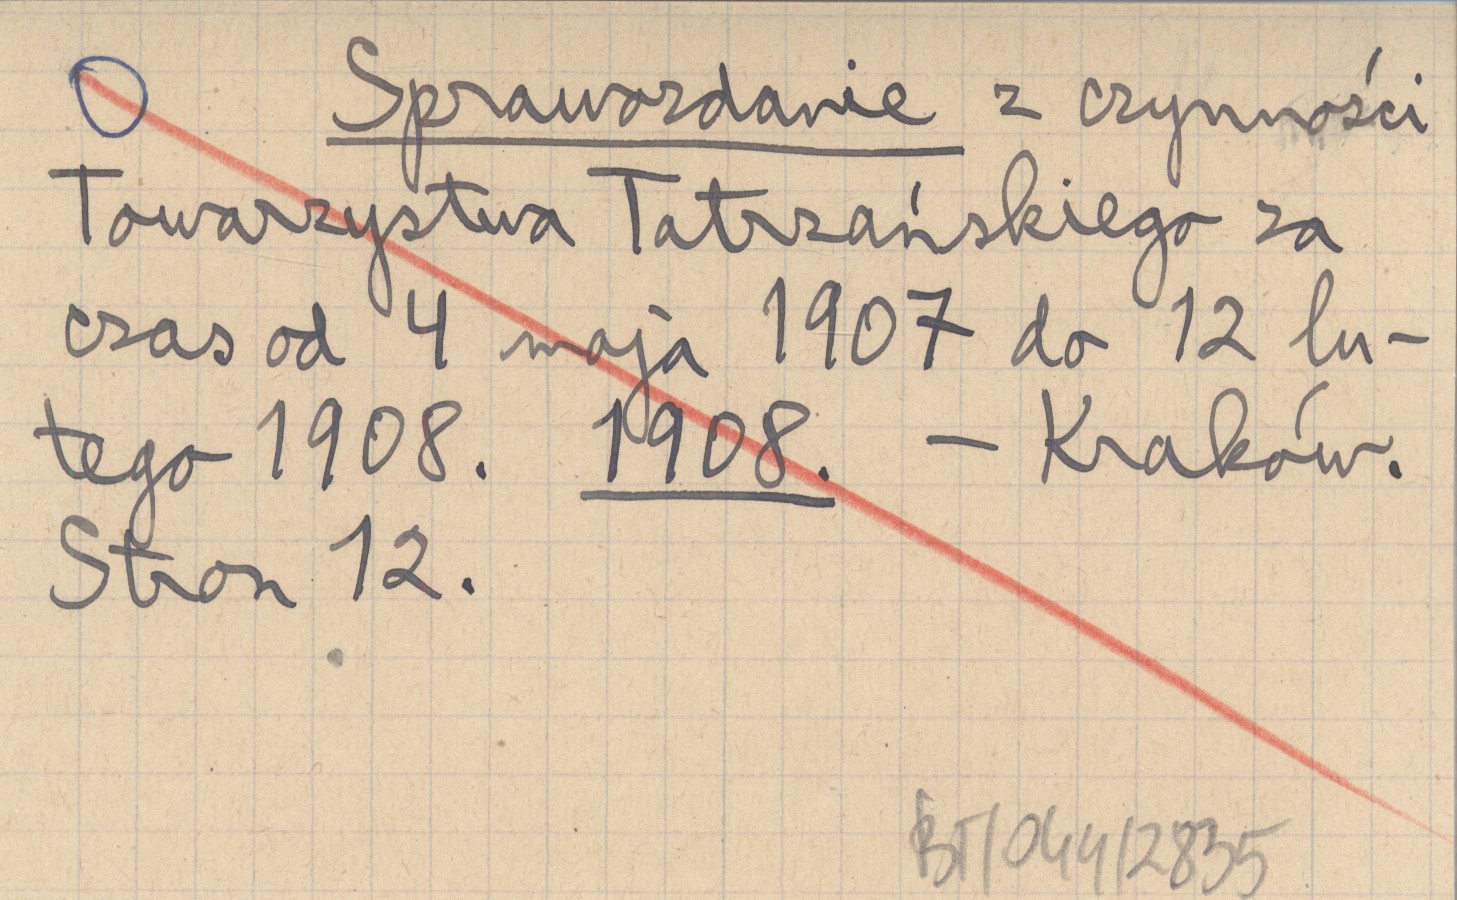 Sprawozdanie z czynności
Towarzystwa Tatrzańskiego za
czas od 4 maja 1907 do 12 lu-
tego 1908. 1908. — Kraków.
Stron 12.
BT/044/2835